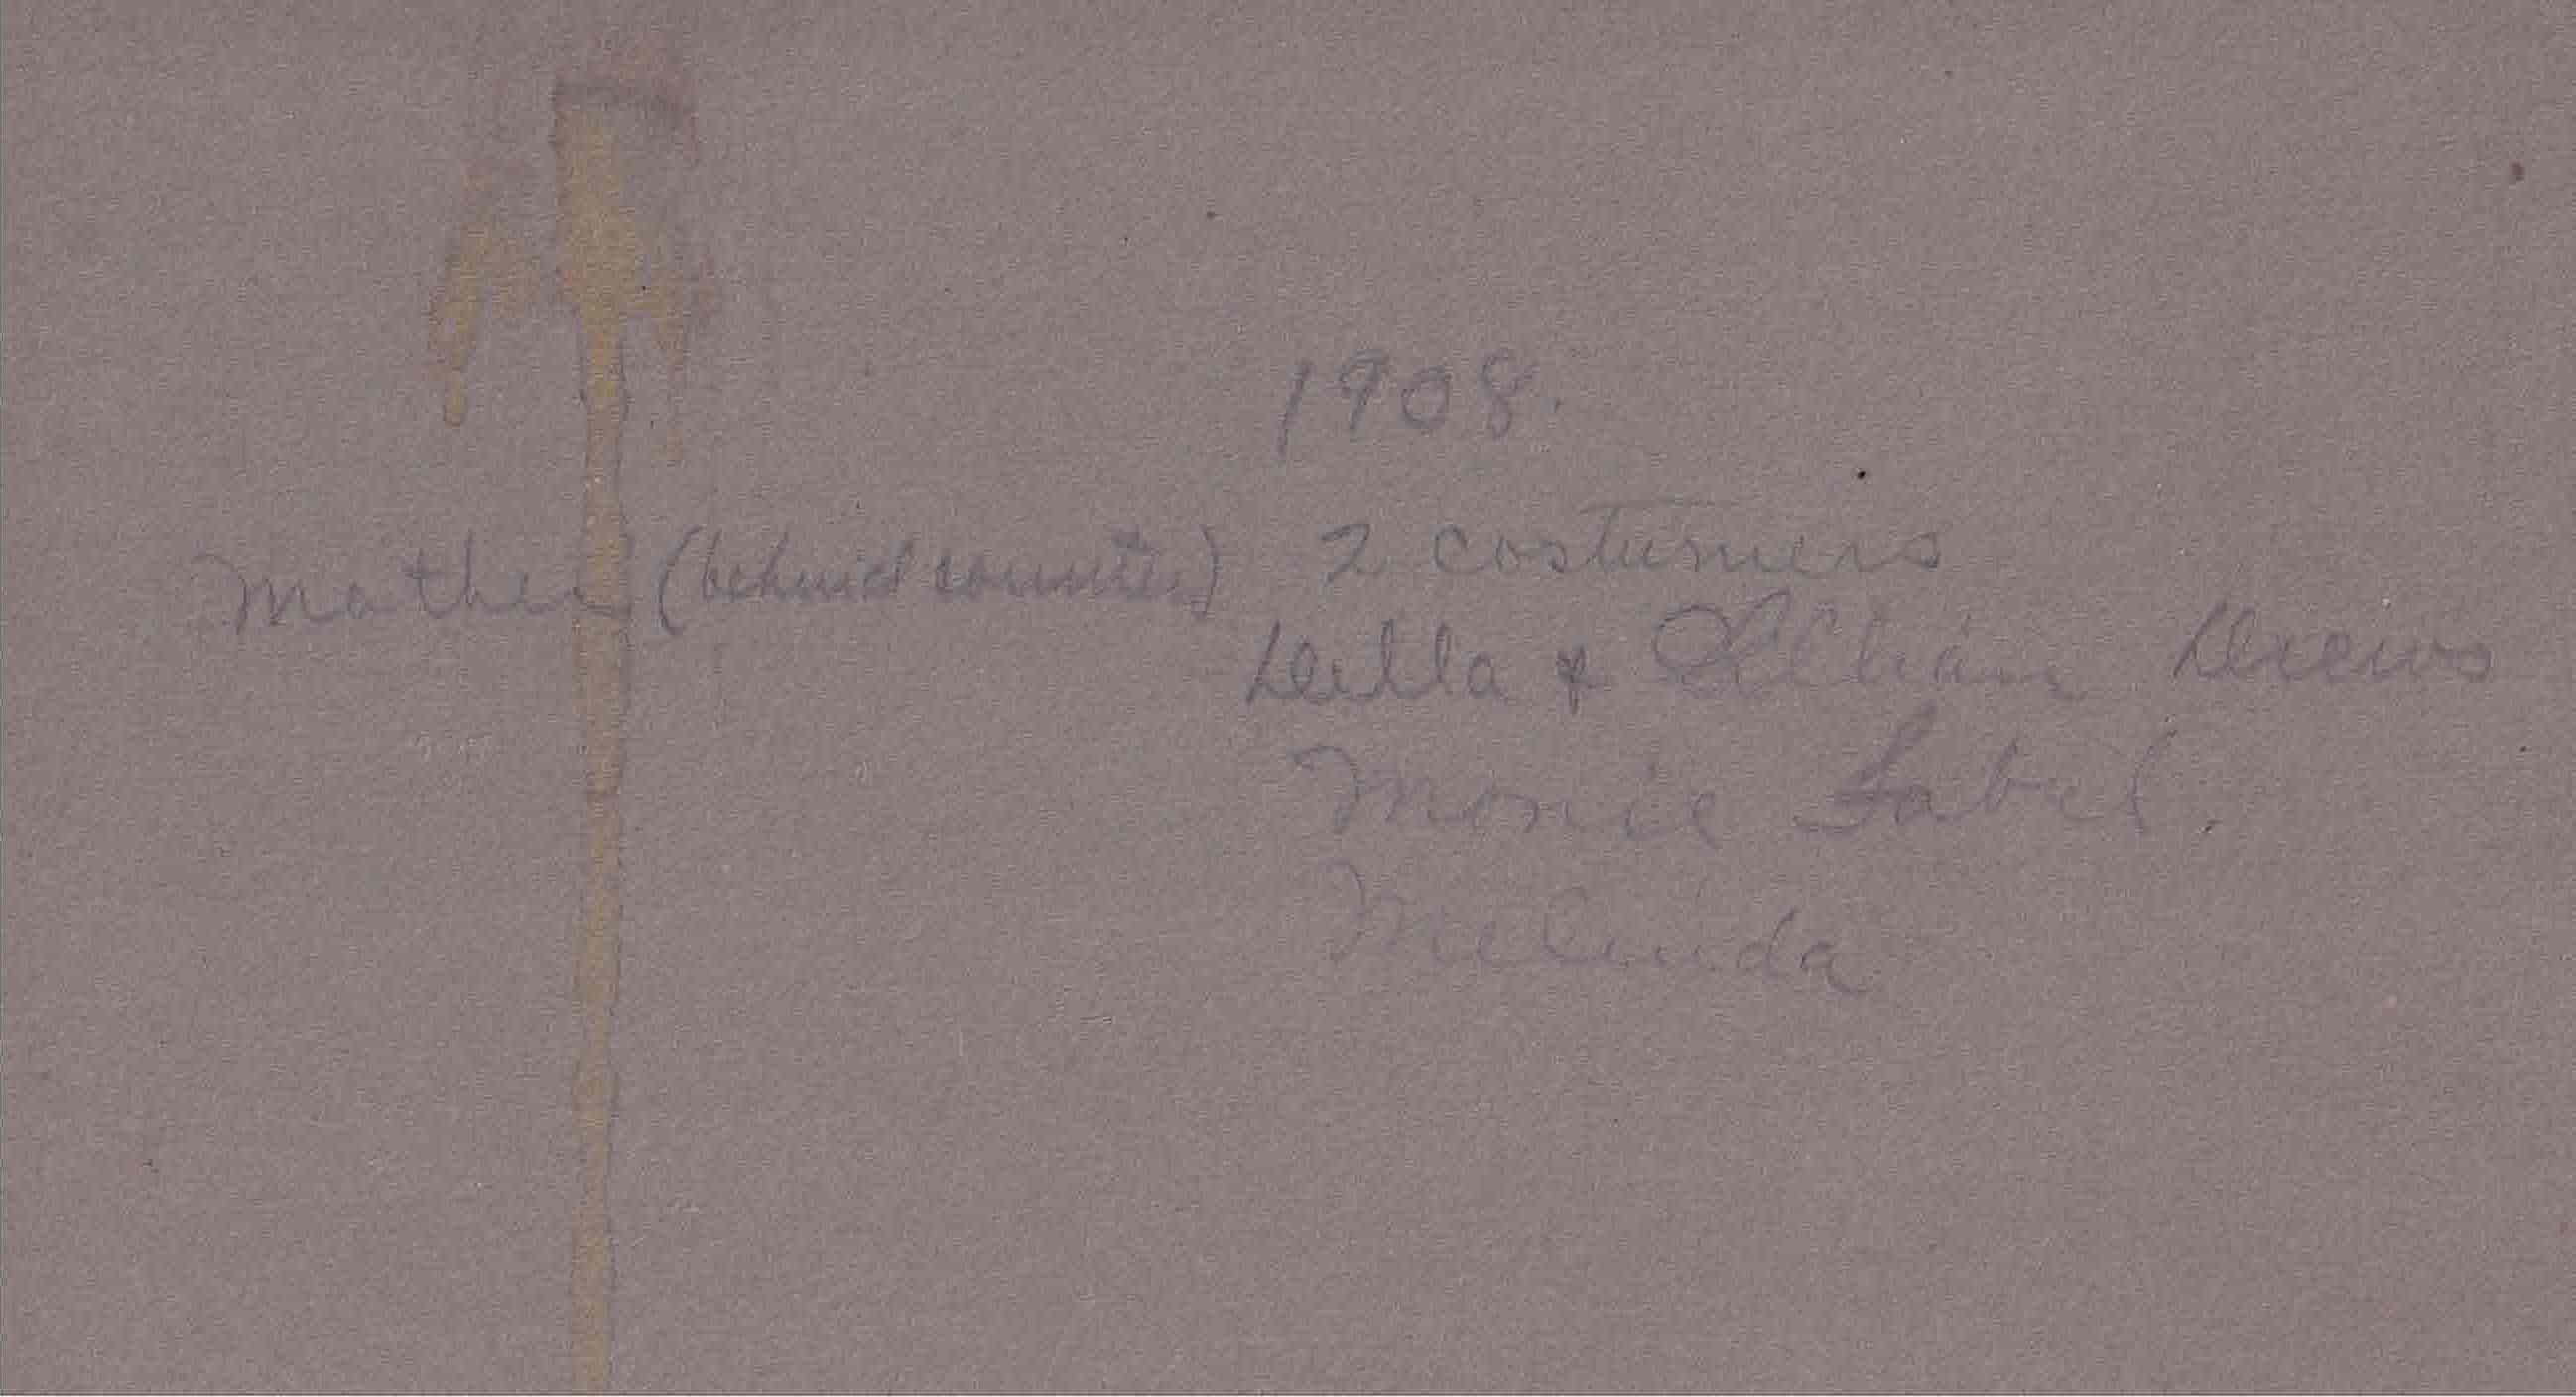 1908.
Mother (behind counter) 2 costumers
Della & Lillian Drews
Monie Fabel.
Melinda